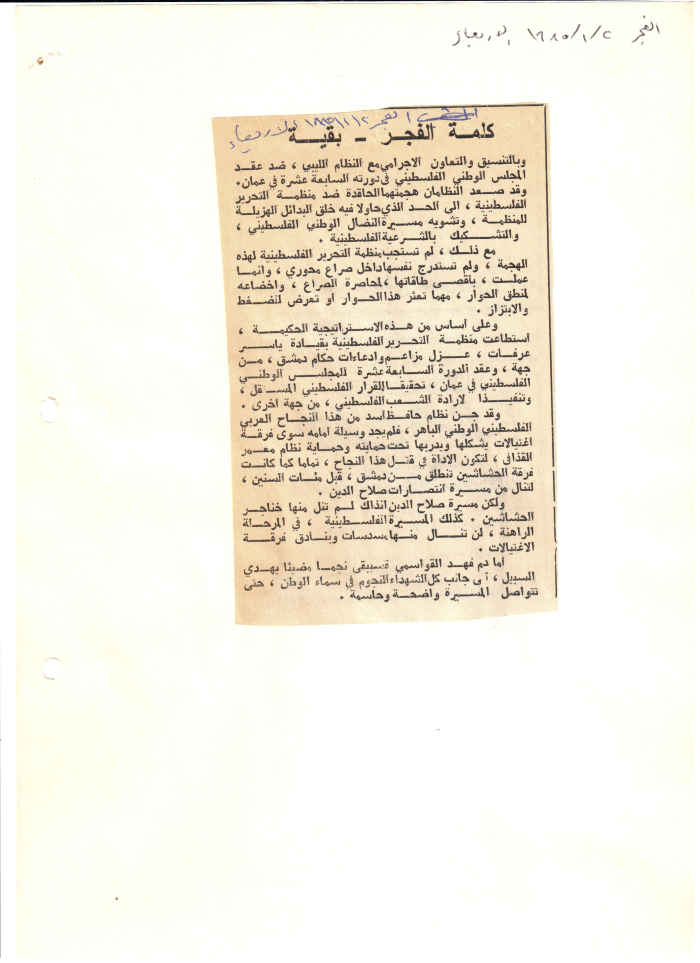 الفجر ١٩٨٥/١/٢ الاربعاء
الفجر ١٩٨٥/١/٢ الاربعاء
كلمة الفجر ـ بقية
وبالتنسيق والتعاون الاجرامي مع النظام الليبي ، ضد عقد
المجلس الوطني الفلسطيني في دورته السابعة عشرة في عمان.
وقد صعد النظامان هجمتهما الحاقدة ضد منظمة التحرير
الفلسطينية ، الى الحد الذي حاولا فيه خلق البدائل الهزيلة
للمنظمة ، وتشويه مسيرة النضال الوطني الفلسطيني ،
والتشكيك بالشرعية الفلسطينية .
مع ذلك ، لم تستجب منظمة التحرير الفلسطينية لهذه
الهجمة ، ولم تستدرج نفسها داخل صراع محوري ، وانما
عملت ، بأقصى طاقاتها ، لمحاصرة الصراع ، واخضاعه
لمنطق الحوار ، مهما تعثر هذا الحوار أو تعرض للضغط
والابتزاز .
وعلى أساس من هذه الاستراتيجية الحكيمة ،
استطاعت منظمة التحرير الفلسطينية بقيادة ياسر
عرفات ، عزل مزاعم وادعاءات حكام دمشق ، من
جهة ، وعقد الدورة السابعة عشرة للمجلس الوطني
الفلسطيني في عمان ، تحقيقا للقرار الفلسطيني المستقل ،
وتنفيذا لارادة الشعب الفلسطيني ، من جهة اخرى .
وقد جن نظام حافظ اسد من هذا النجاح العربي
الفلسطيني الوطني الباهر ، فلم يجد وسيلة أمامه سوى فرقة
اغتيالات يشكلها ويدربها تحت حمايته وحماية نظام معمر
القذافي ، لتكون الاداة في قتل هذا النجاح ، تماما كما كانت
فرقة الحشاشين تنطلق من دمشق ، قبل مئات السنين ،
لتنال من مسيرة انتصارات صلاح الدين .
ولكن مسيرة صلاح الدين انذاك لم تنل منها خناجر
الحشاشين . كذلك المسيرة الفلسطينية ، في المرحلة
الراهنة ، لن تنال منها مسدسات وبنادق فرقة
الاغتيالات .
اما دم فهد القواسمي فسيبقى نجما مضيئا يهدي
السبيل ، الى جانب كل الشهداء النجوم في سماء الوطن ، حتى
تتواصل المسيرة واضحة وحاسمة .